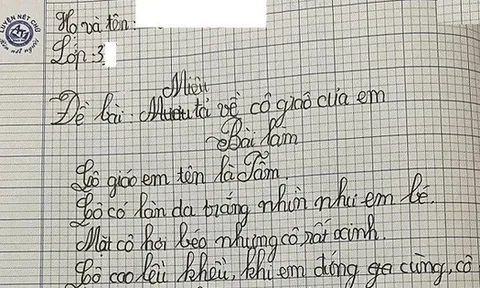 UYỆN NÉT CHỮ
nết người
Họ và tên:
Lớp: 3
Miêu
Đề bài: tả về cô giáo của em
Bài làm
Cô giáo em tên là Tẫm.
Cô có làn da trắng nhìn như em bé.
Mặt cô hơi béo nhưng cô rất xinh.
Cô cao lêu khêu, khi em đứng cùng, cô